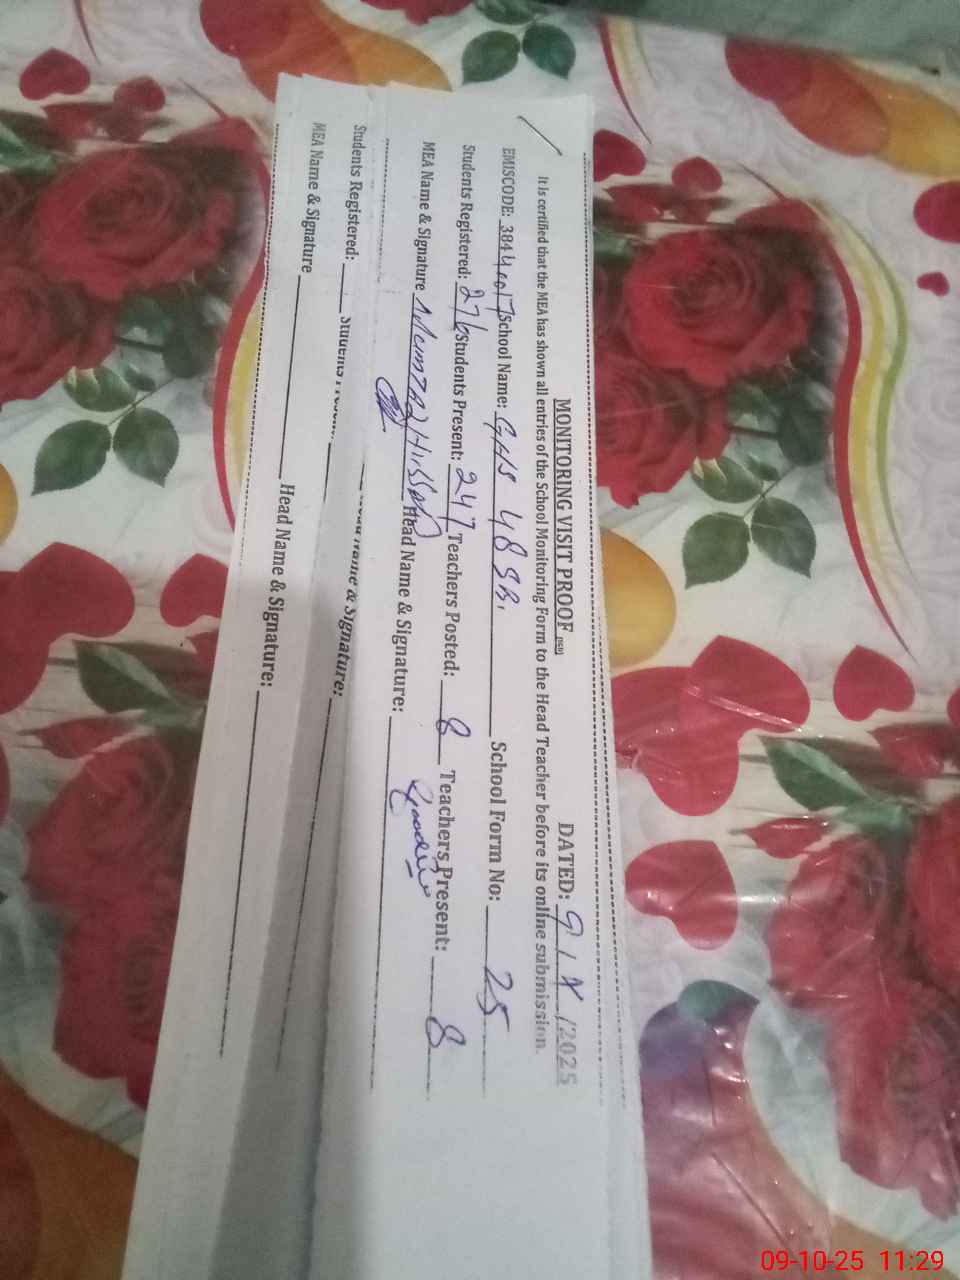 MONITORING VISIT PROOF (SED) DATED: 9 / X /2025
It is certified that the MEA has shown all entries of the School Monitoring Form to the Head Teacher before its online submission.
EMISCODE: 38440017 School Name: GHS 48 SB. School Form No: 25
Students Registered: 276 Students Present: 247 Teachers Posted: 8 Teachers Present: 8
MEA Name & Signature Mumtaz Hussain Head Name & Signature:
Head Name & Signature:
Students Registered: Students Present:
MEA Name & Signature Head Name & Signature:
09-10-25 11:29